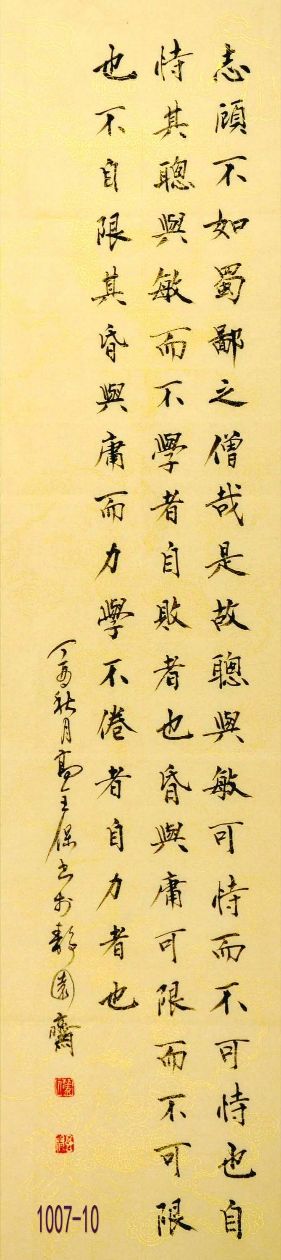 志顾不如蜀鄙之僧哉是故聰與敏可恃而不可恃也自
恃其聰與敏而不學者自敗者也昏與庸可限而不可限
也不自限其昏與庸而力學不倦者自力者也
丁亥秋月高玉保书于静園齋
1007-10